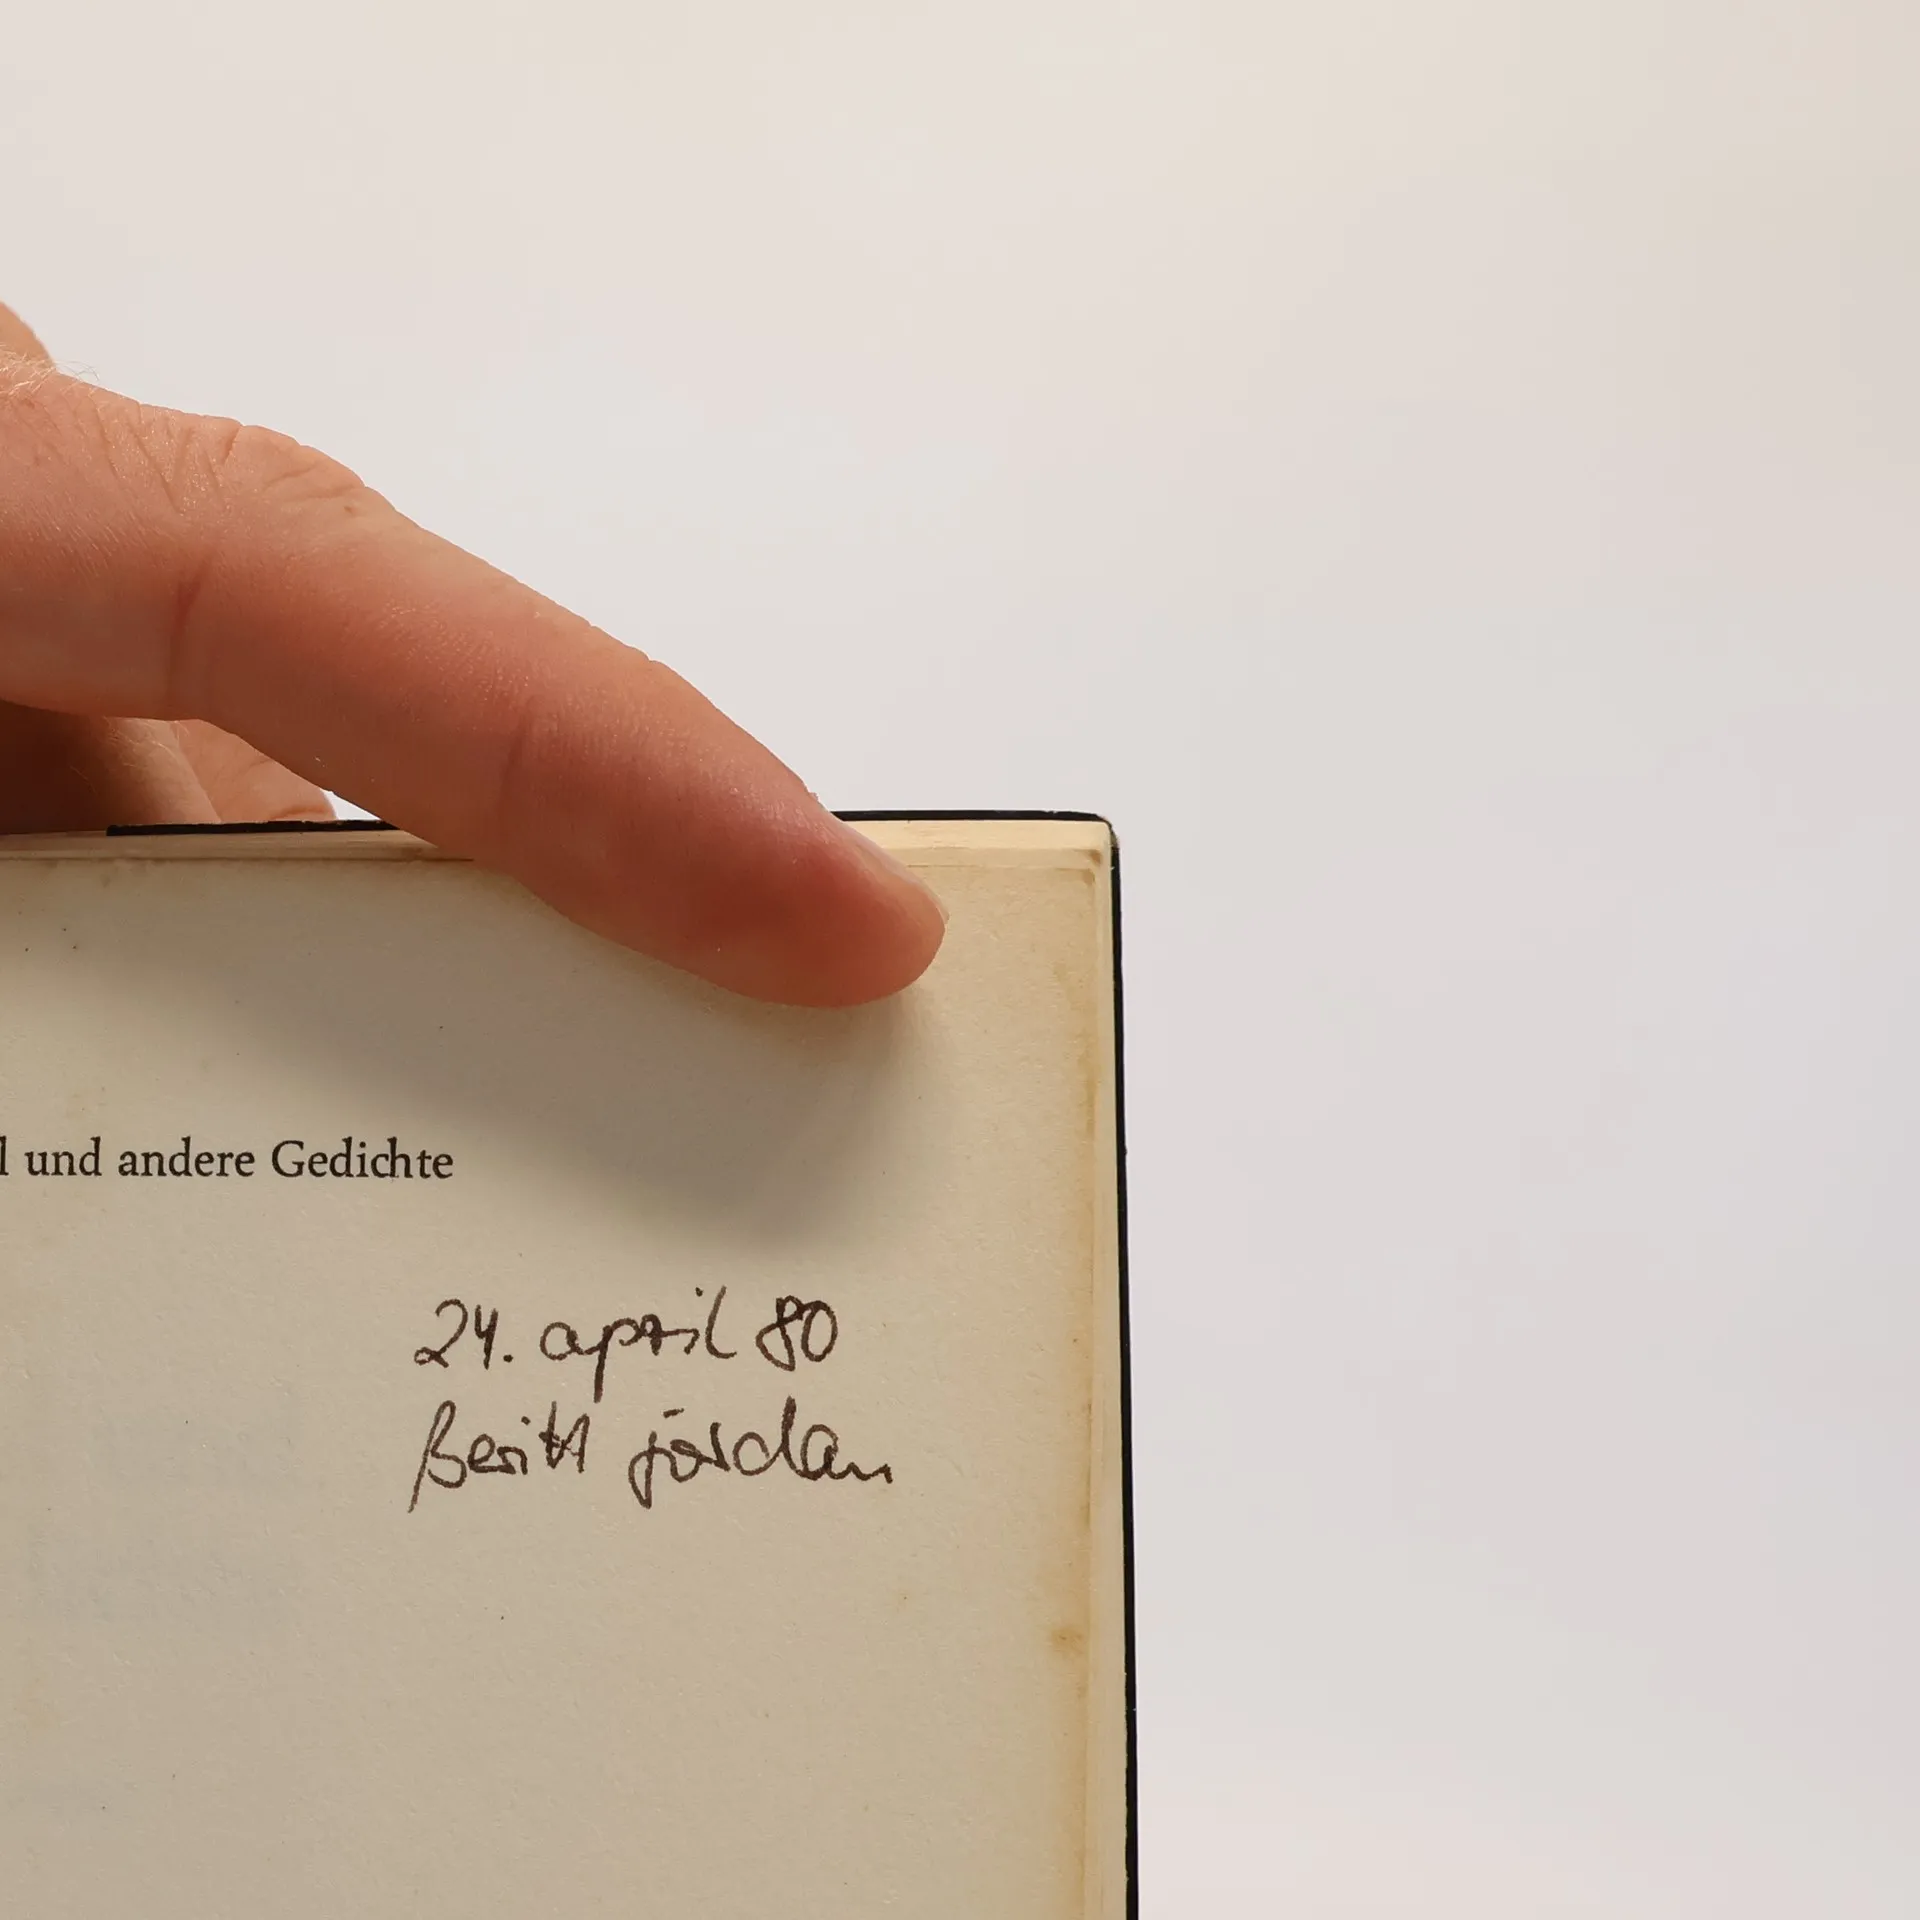 l und andere Gedichte
24. april 80
Beritt jordan